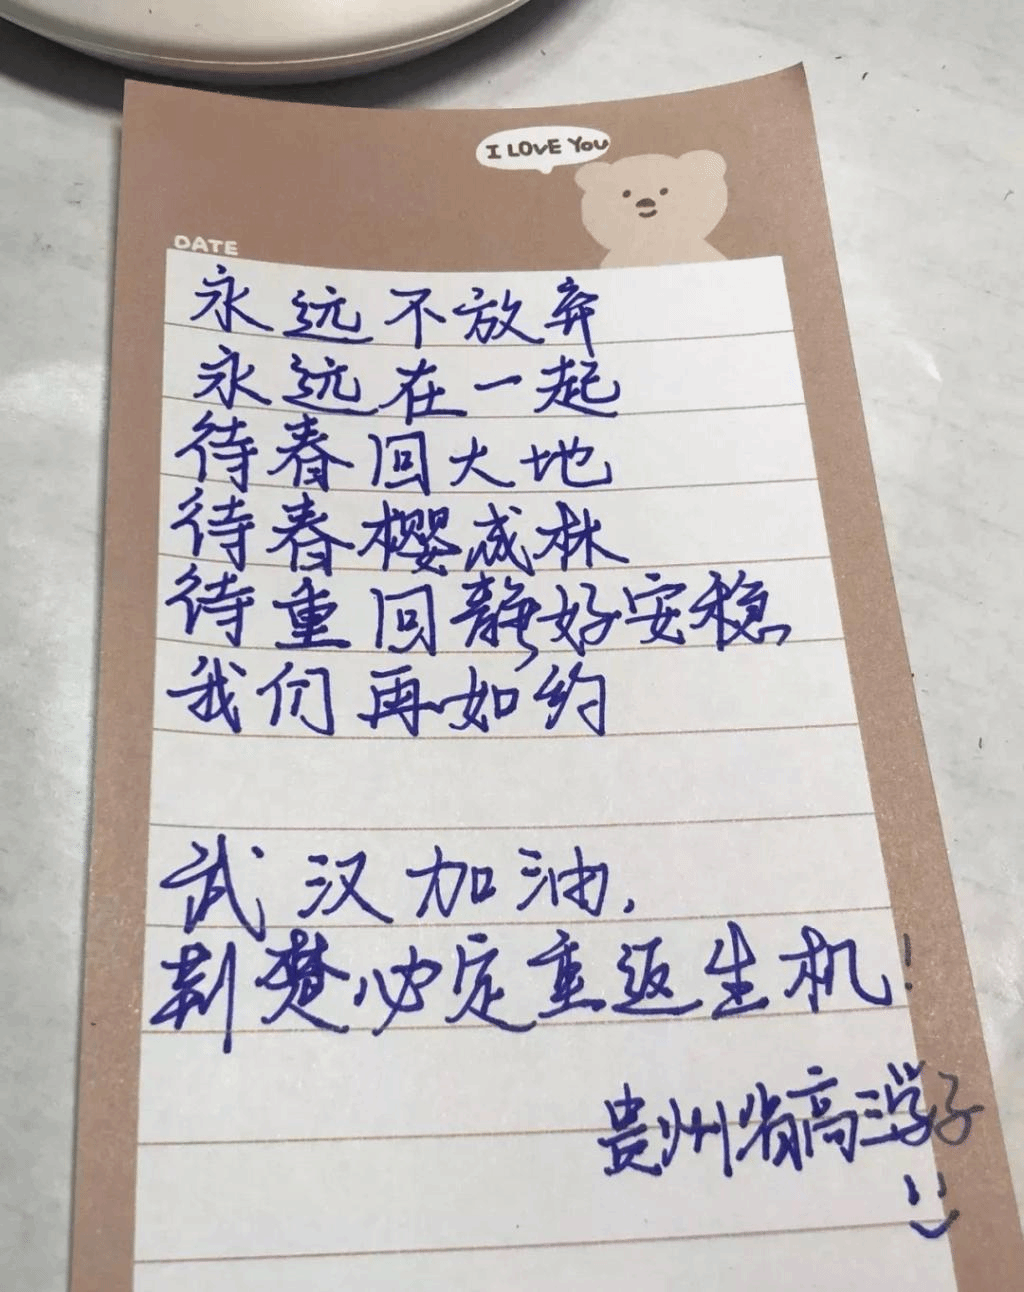 I LOVE YOU
DATE
永远不放弃
永远在一起
待春回大地
待春樱成林
待重回静好安稳
我们再如约
武汉加油.
荆楚必定重返生机!
贵州省高三学子